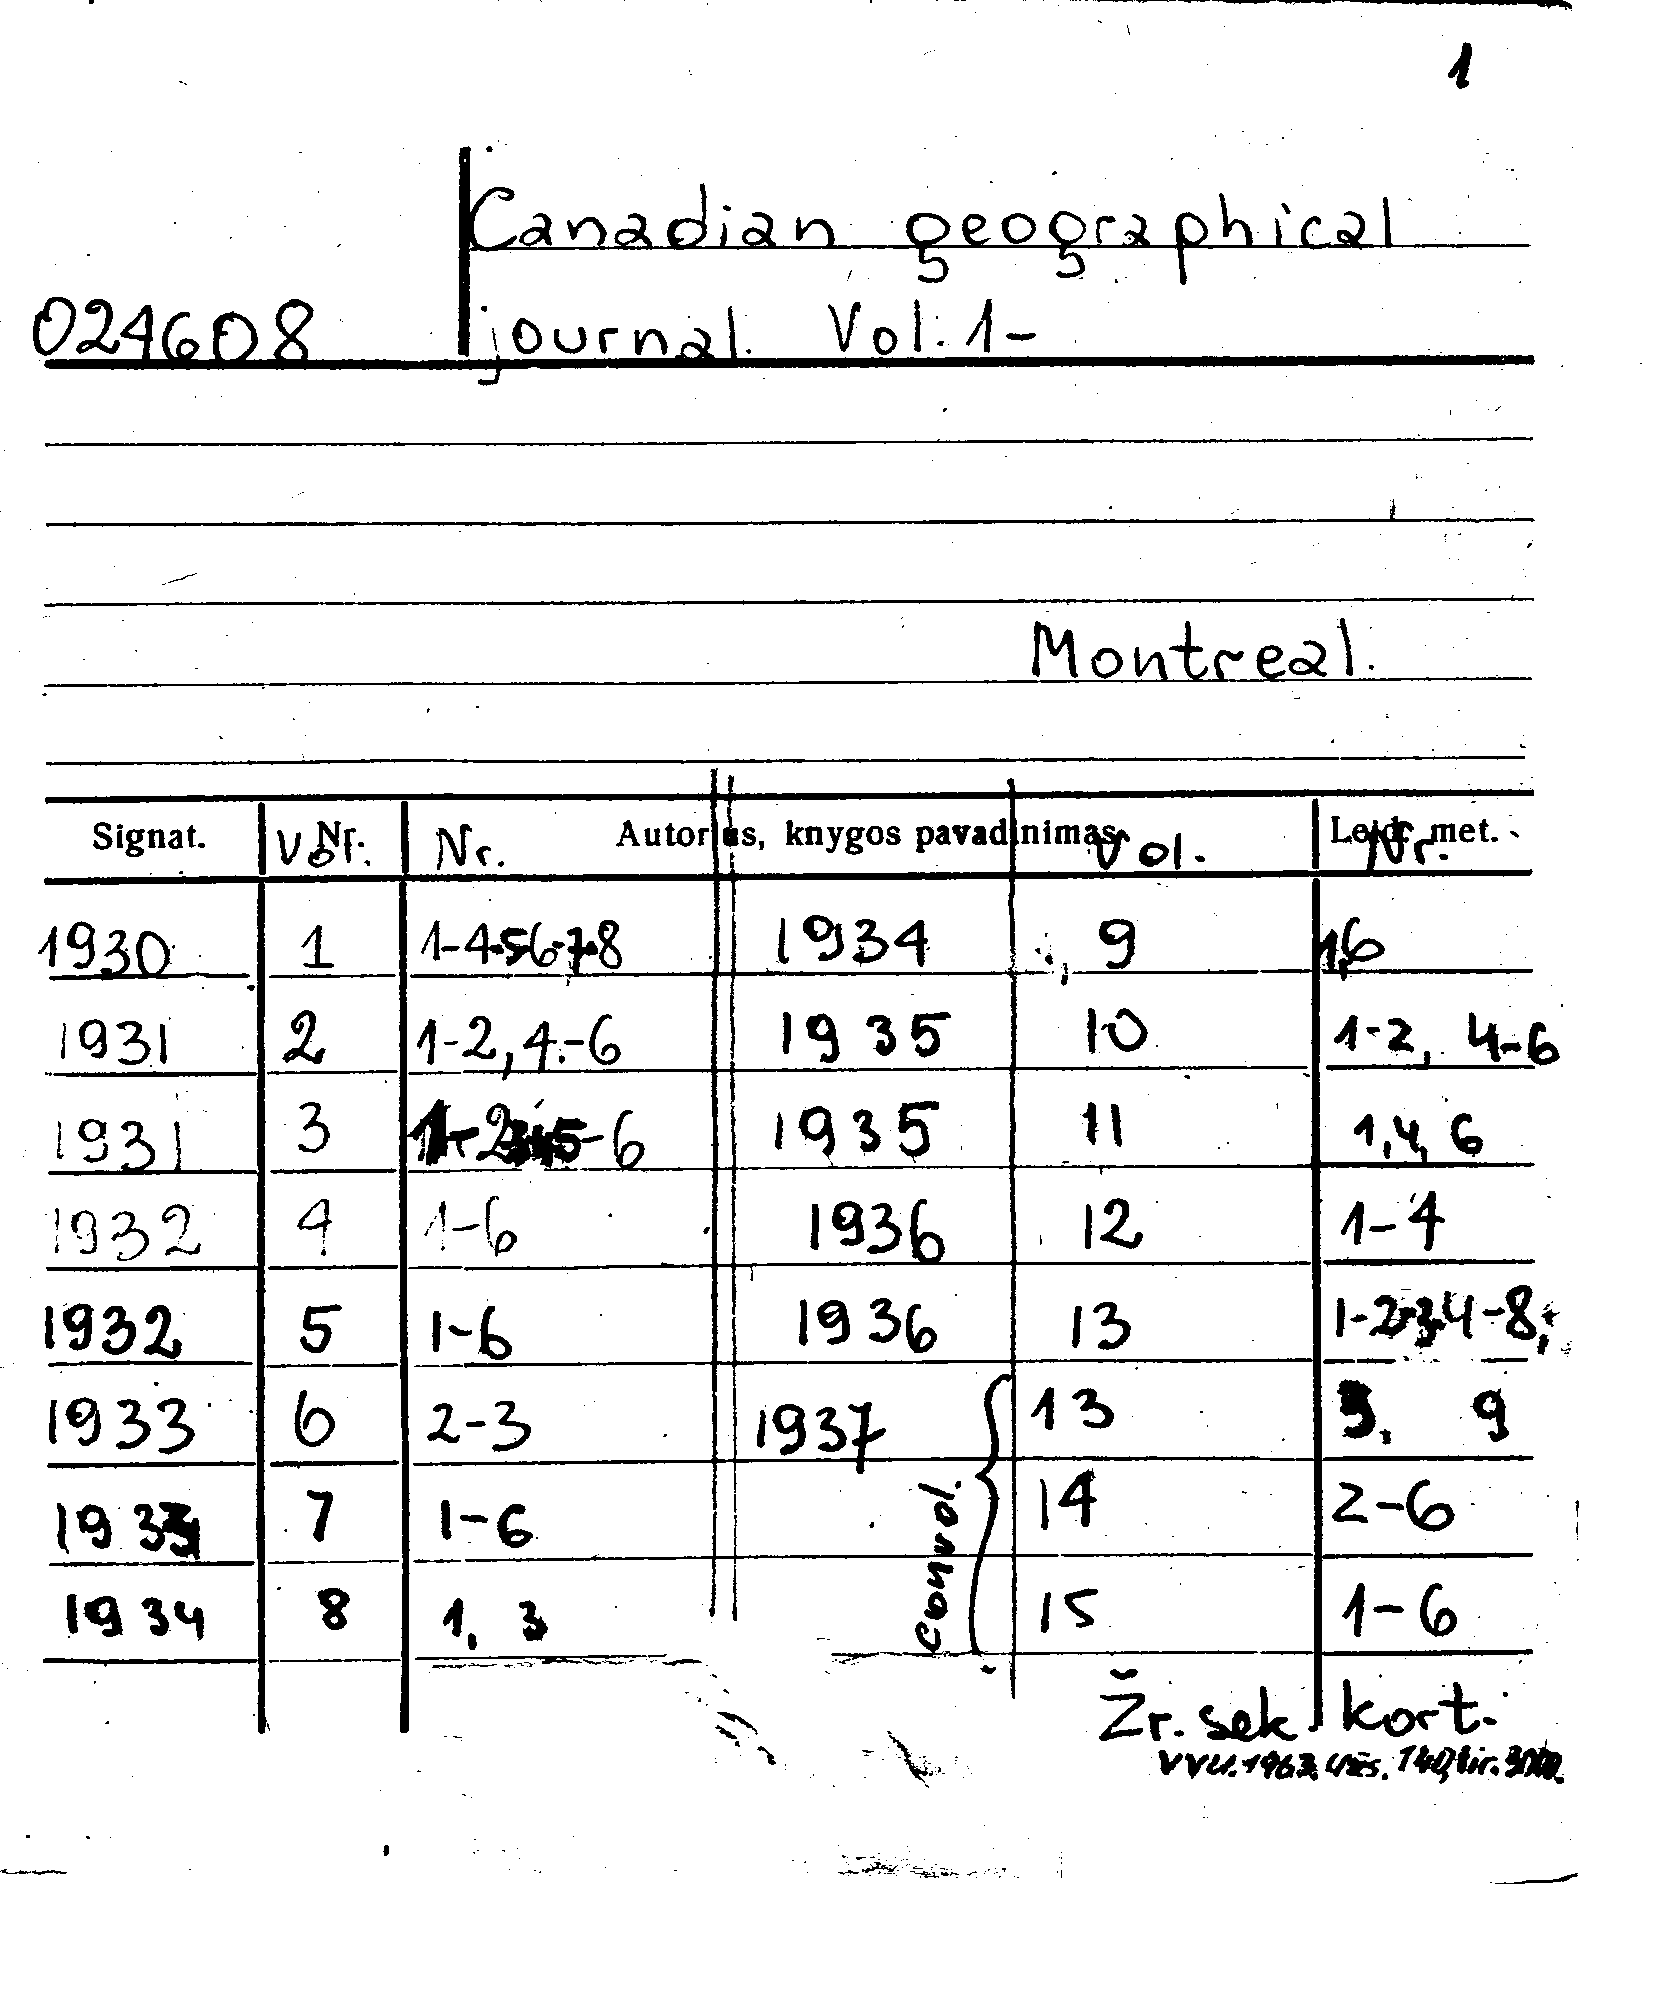 1
Canadian geographical
024608 journal. Vol. 1-
Montreal.
Signat. Nr. Autorius, knygos pavadinimas Leid. met.
Vol. Nr. Vol. Nr.
1930 1 1-4-5-6-7-8 1934 9 1,6
1931 2 1-2, 4-6 1935 10 1-2, 4-6
1931 3 1-2-3-4-5-6 1935 11 1, 4, 6
1932 4 1-6 1936 12 1-4
1932 5 1-6 1936 13 1-2-3-4-8,
1933 6 2-3 1937 13 3. 9
1933 7 1-6 14 2-6
1934 8 1, 3 convol. 15 1-6
Žr. sek. kort.
VVU. 1963. Užs. 140, tir.